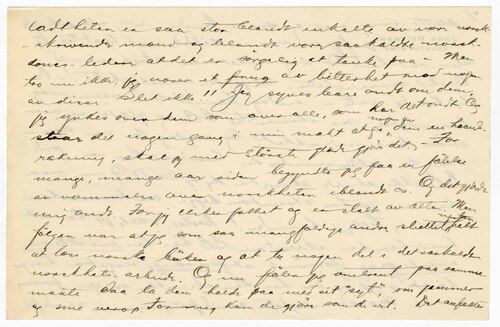 ladtheten er saa stor blandt enkelte av vore norsk-
skrivende mænd og blandt vore saakaldte norsk-
doms-ledere at det er sørgelig at tænke paa - Men
tro nu ikke jeg nærer et fnug av bitterhet mod nogen
av disse. Slet ikke!! Jeg synes bare ondt om dem,
jeg ynkes over dem som over alle, som har det ondt. Og
staar det nogen gang i min magt at gi dem en haand-
rækning, skal jeg med største glæde gjøre det - For
mange, mange aar siden begyndte jeg faa en følelse
av vemmelse over norskheten iblandt os. Og det gjorde
mig ondt. For jeg elsker folket og er stolt av dette. Men
følgen var at jeg som saa mangfoldige andre sluttet
at læse norske bøker og at ta nogen del i det saakaldte
norskhets-arbeide. Og nu føler jeg omtrent paa samme
maate. Saa la dem holde paa med sit "syt", om jammer
og sine verop. For mig kan de gjøre som de vil. Det